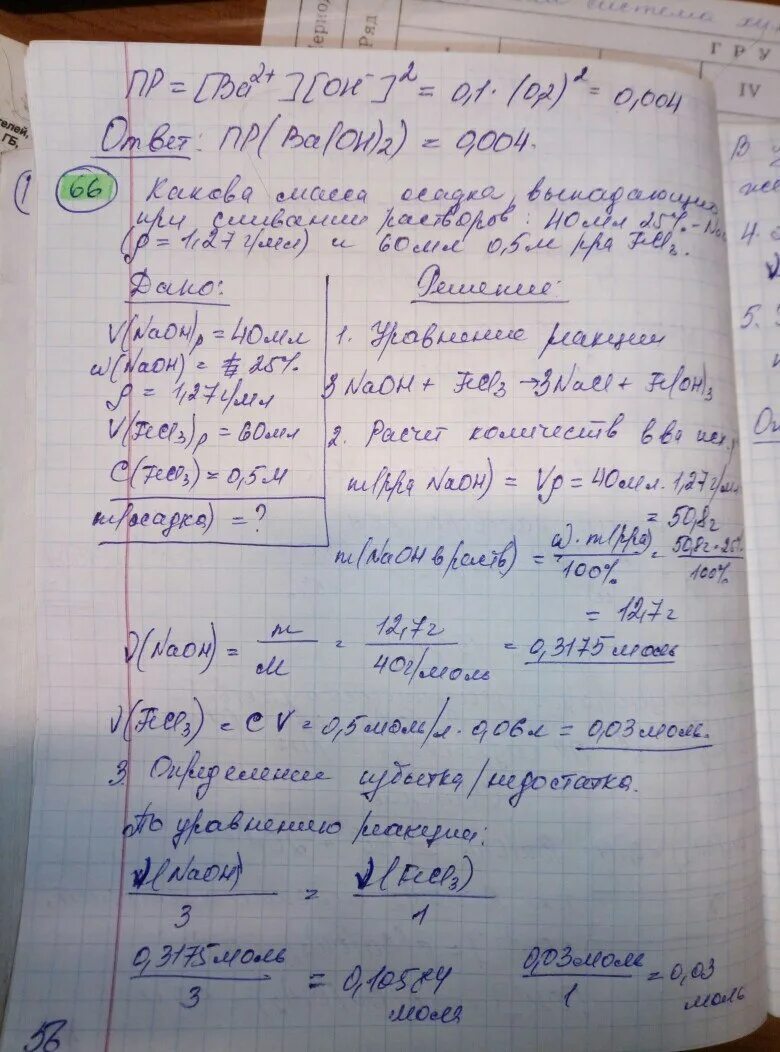 система
Период
Ряд
Г Р У
IV
телей,
ГБ,
ПР = [Ba²⁺][OH⁻]² = 0,1 · (0,2)² = 0,004
Ответ: ПР(Ba(OH)₂) = 0,004.
66 Какова масса осадка, выпадающи
при сливании растворов: 40мл 25%-
(ρ = 1,27 г/мл) и 60мл 0,5М рра FeCl₃.
Дано:
V(NaOH)р = 40мл
ω(NaOH) = 25%
ρ = 1,27г/мл
V(FeCl₃)р = 60мл
C(FeCl₃) = 0,5М
m(осадка) = ?
Решение:
1. Уравнение реакции
3NaOH + FeCl₃ → 3NaCl + Fe(OH)₃
2. Расчет количеств в-ва исх.
m(рра NaOH) = Vρ = 40мл · 1,27г/мл
= 50,8г
m(NaOH в раств) = ω · m(рра) / 100% = 50,8г · 25% / 100%
= 12,7г
ν(NaOH) = m / M = 12,7г / 40г/моль = 0,3175 моль
ν(FeCl₃) = CV = 0,5моль/л · 0,06л = 0,03 моль.
3. Определение избытка/недостатка.
По уравнению реакции:
ν(NaOH) / 3 = ν(FeCl₃) / 1
0,3175моль / 3 = 0,10584 моля
0,03моль / 1 = 0,03 моль
56
В
4.
5.